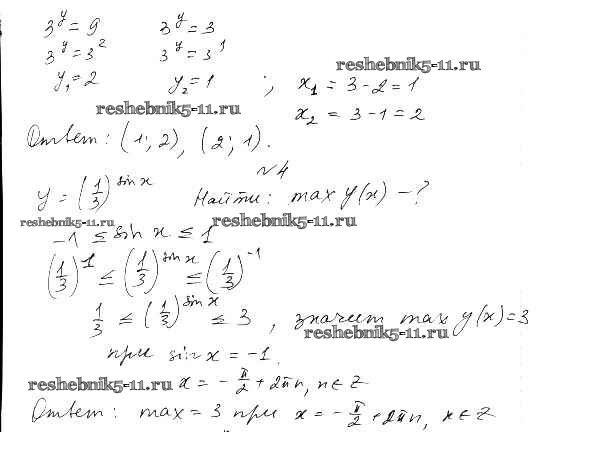 3^y = 9   3^y = 3
3^y = 3^2   3^y = 3^1
reshebnik5-11.ru
y₁ = 2   y₂ = 1   ;   x₁ = 3 - 2 = 1
reshebnik5-11.ru
x₂ = 3 - 1 = 2
Ответ: (1; 2), (2; 1).
№4
y = (1/3)^sin x   Найти: max y(x) - ?
reshebnik5-11.ru   reshebnik5-11.ru
-1 ≤ sin x ≤ 1
(1/3)^1 ≤ (1/3)^sin x ≤ (1/3)^-1
1/3 ≤ (1/3)^sin x ≤ 3 , значит max y(x) = 3
reshebnik5-11.ru
при sin x = -1.
reshebnik5-11.ru   x = - π/2 + 2πn, n ∈ Z
Ответ: max = 3 при x = - π/2 + 2πn, n ∈ Z